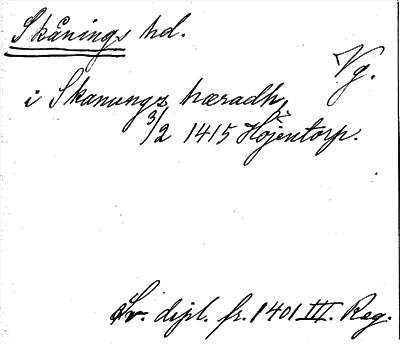 Skånings hd.
Vg.
i Skanungs hæradh,
3/2 1415 Höjentorp.
Sv. dipl. fr. 1401 III. Reg.